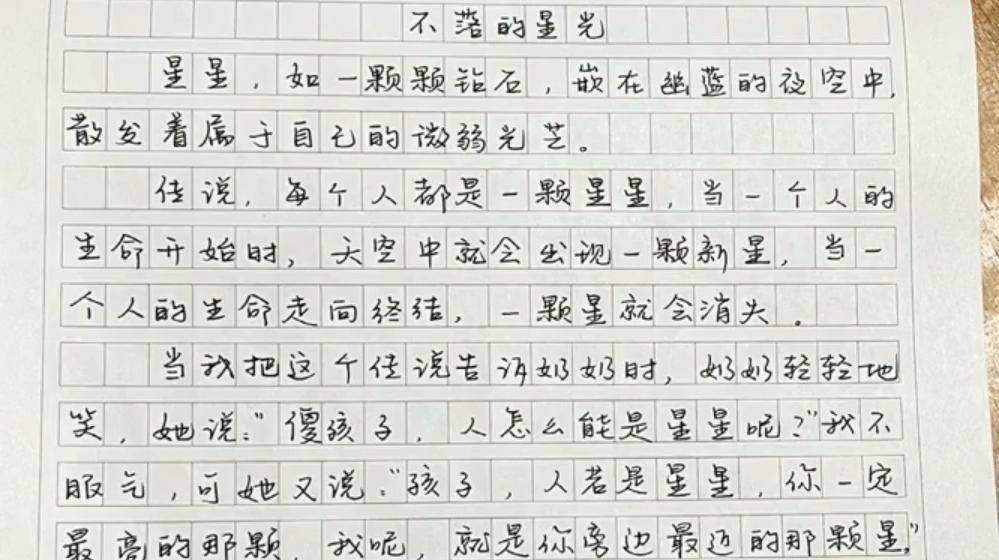 不落的星光
星星，如一颗颗钻石，嵌在幽蓝的夜空中，
散发着属于自己的微弱光芒。
传说，每个人都是一颗星星，当一个人的
生命开始时，天空中就会出现一颗新星，当一
个人的生命走向终结，一颗星就会消失。
当我把这个传说告诉奶奶时，奶奶轻轻地
笑，她说：“傻孩子，人怎么能是星星呢？”我不
服气，可她又说：“孩子，人若是星星，你一定
最亮的那颗，我呢，就是你旁边最近的那颗星”